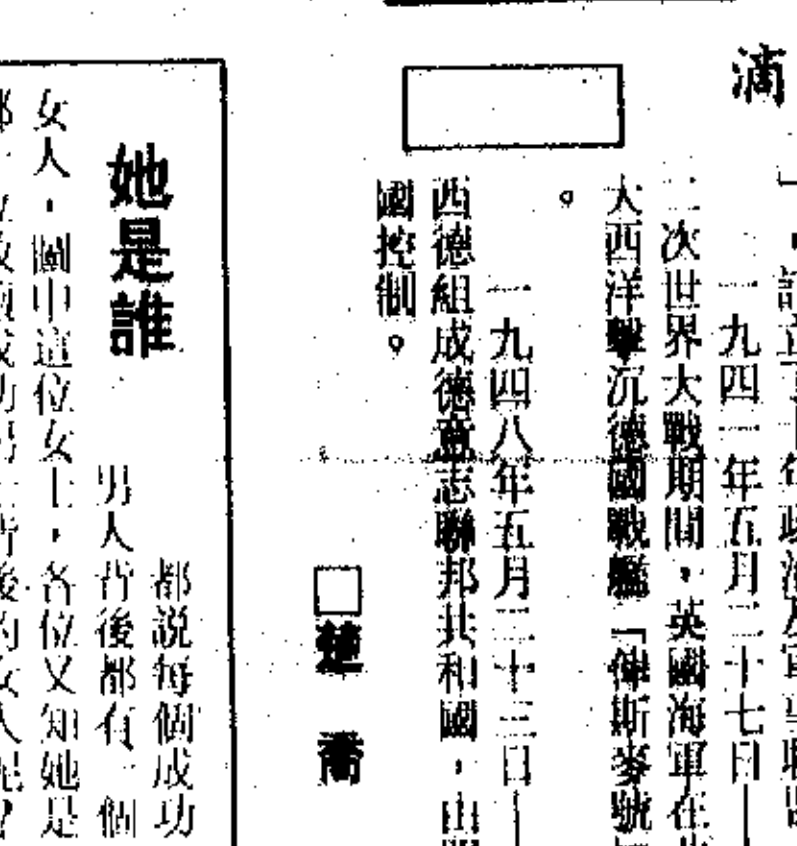 滴
一九四一年五月二十七日—
二次世界大戰期間，英國海軍在
大西洋擊沉德國戰艦「俾斯麥號
。
一九四八年五月二十三日—
西德組成德意志聯邦共和國，由
國控制。
□楚　喬
她是誰
都說每個成功
男人背後都有一個
女人，圖中這位女士，各位又知她是